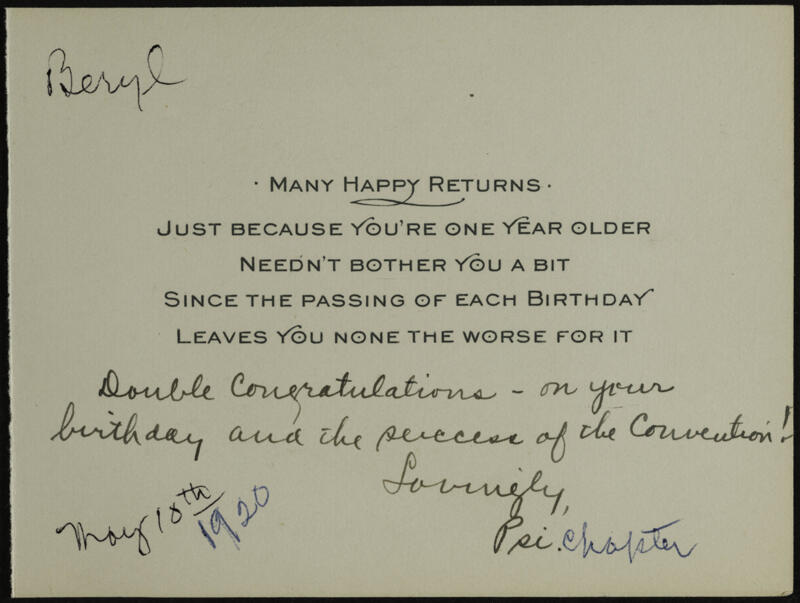 Beryl
· MANY HAPPY RETURNS ·
JUST BECAUSE YOU'RE ONE YEAR OLDER
NEEDN'T BOTHER YOU A BIT
SINCE THE PASSING OF EACH BIRTHDAY
LEAVES YOU NONE THE WORSE FOR IT
Double Congratulations - on your
birthday and the success of the Convention!
Lovingly,
Psi. Chapter
May 18th 1920